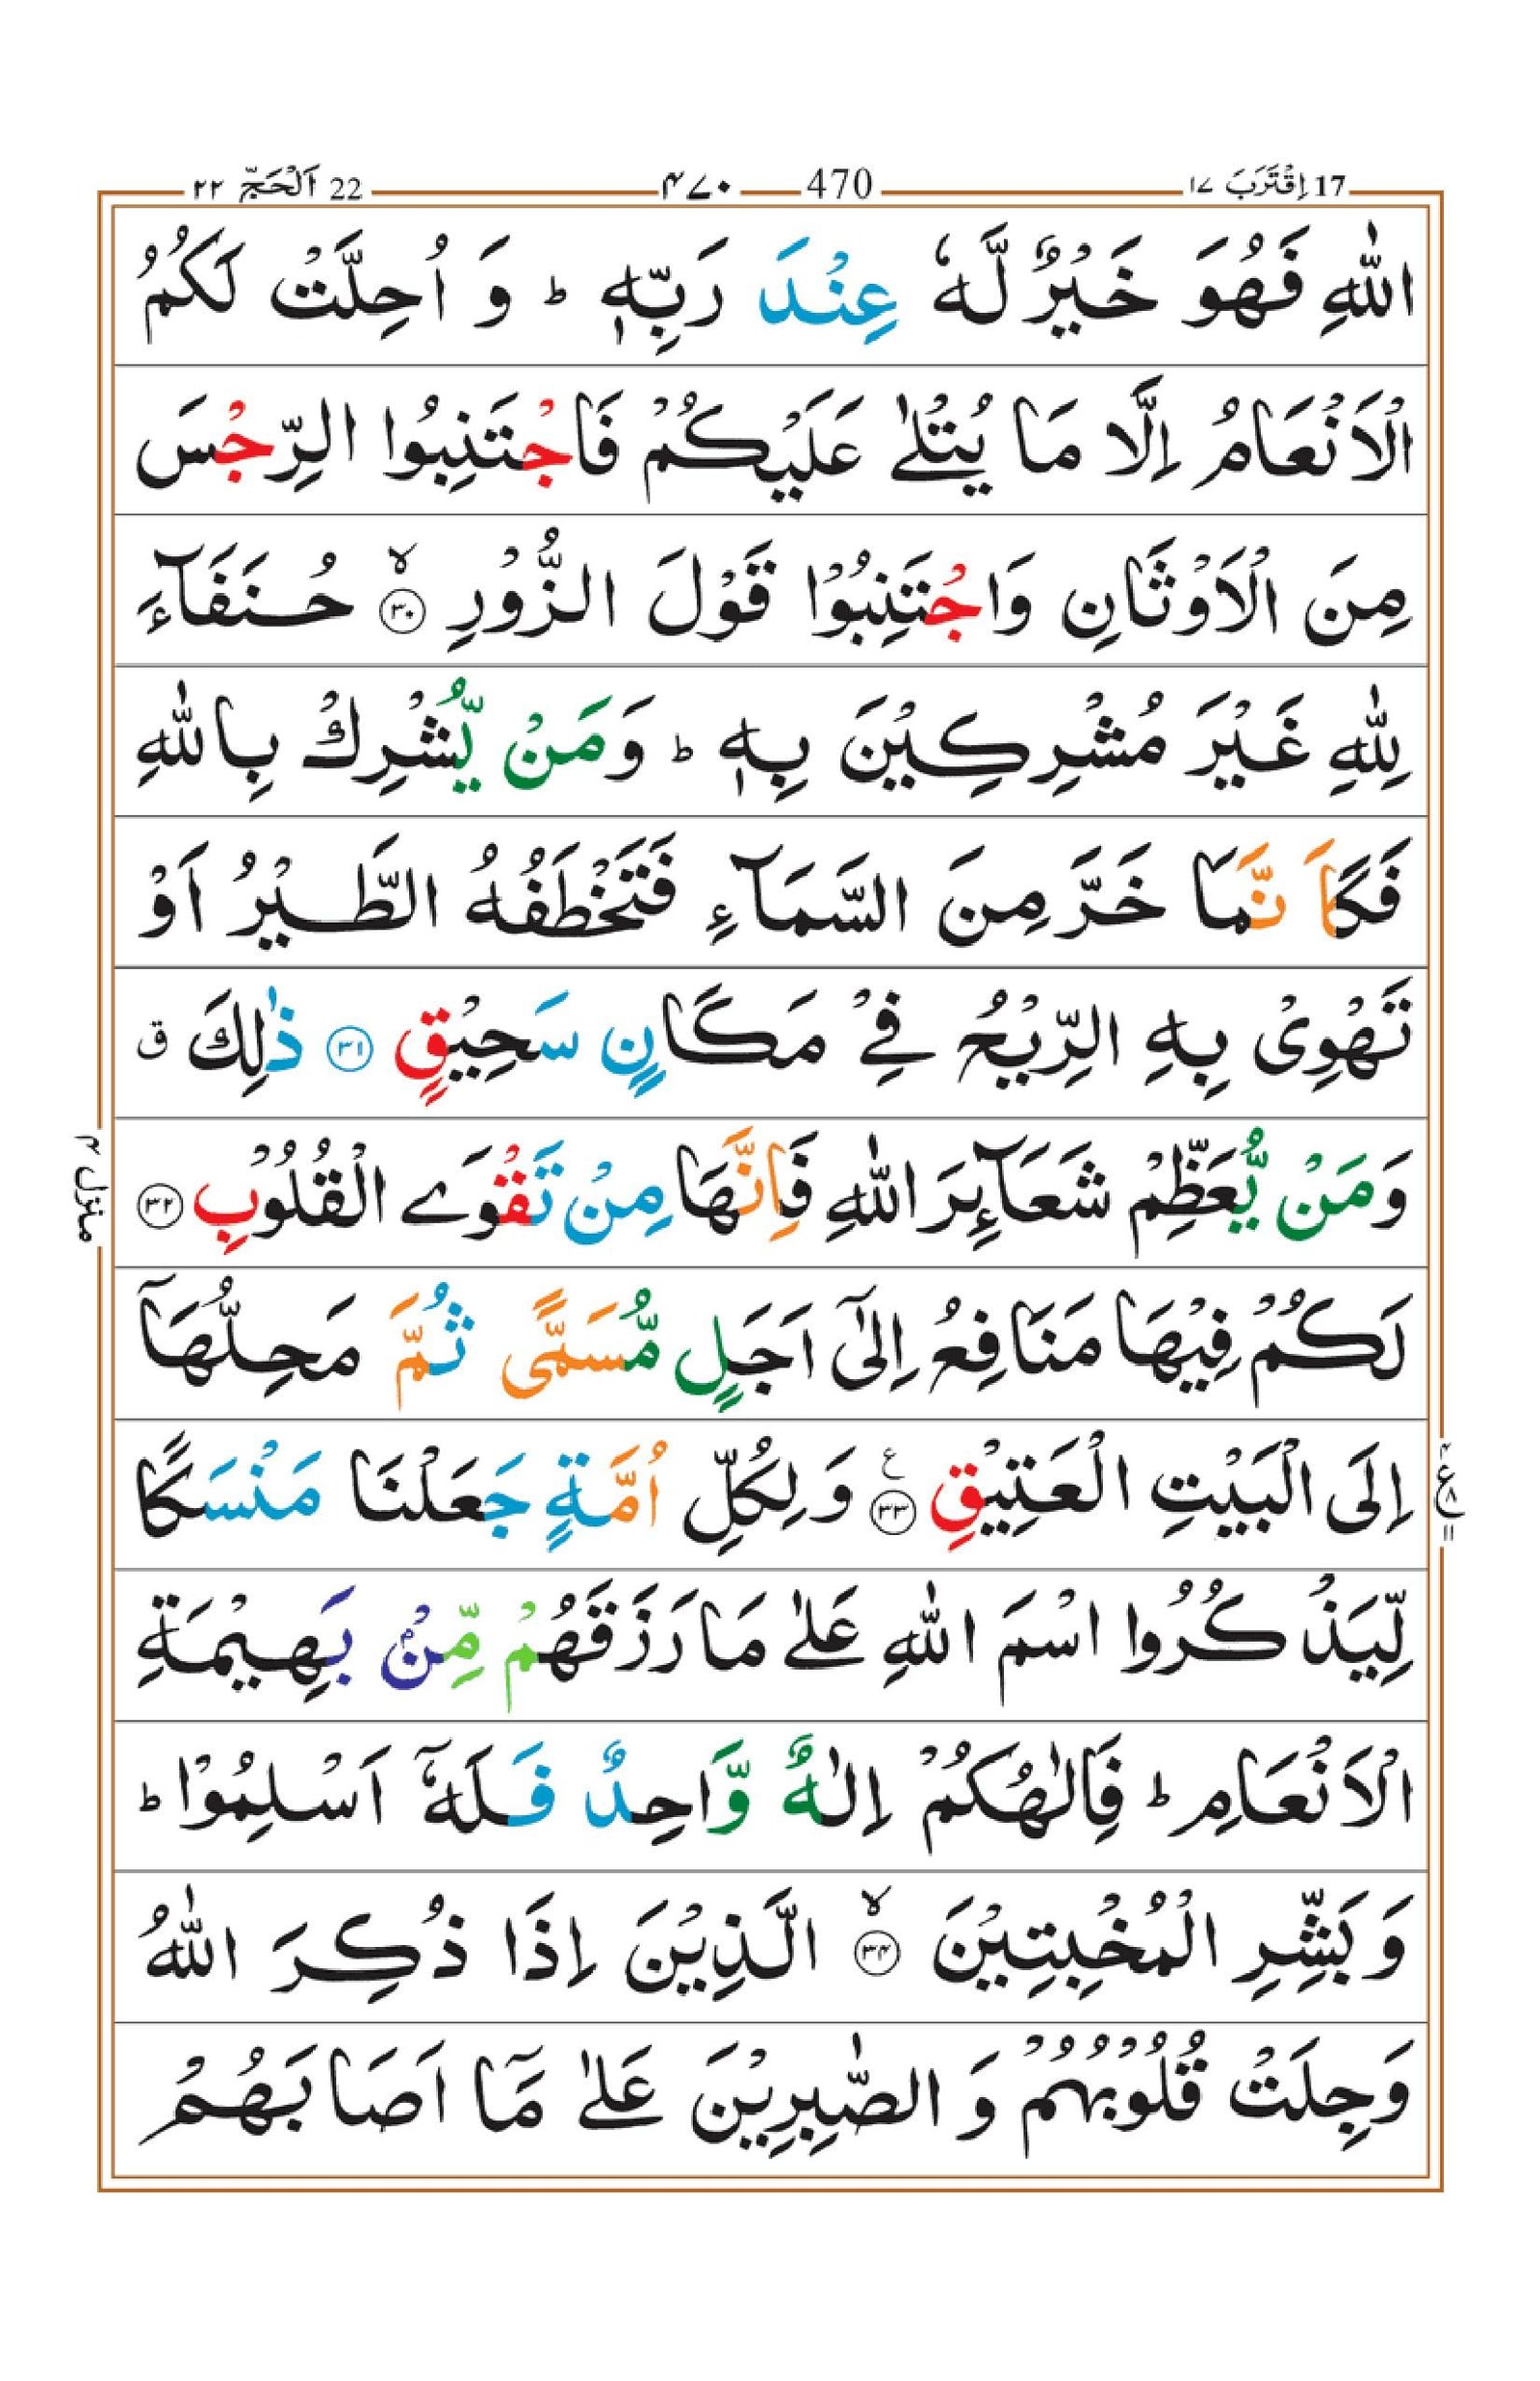 17 اِقْتَرَبَ ١٧ 470 ۴۷۰ 22 اَلْحَجّ ٢٢
اللّٰهِ فَهُوَ خَيْرٌ لَّهٗ عِنْدَ رَبِّهٖ ؕ وَ اُحِلَّتْ لَكُمُ
الْاَنْعَامُ اِلَّا مَا يُتْلٰى عَلَيْكُمْ فَاجْتَنِبُوا الرِّجْسَ
مِنَ الْاَوْثَانِ وَاجْتَنِبُوْا قَوْلَ الزُّوْرِ ۙ‏ ﴿۳۰﴾ حُنَفَآءَ
لِلّٰهِ غَيْرَ مُشْرِكِيْنَ بِهٖ ؕ وَمَنْ يُّشْرِكْ بِاللّٰهِ
فَكَاَنَّمَا خَرَّ مِنَ السَّمَآءِ فَتَخْطَفُهُ الطَّيْرُ اَوْ
تَهْوِىْ بِهِ الرِّيْحُ فِىْ مَكَانٍ سَحِيْقٍ ﴿۳۱﴾ ذٰلِكَ ق
وَمَنْ يُّعَظِّمْ شَعَآئِرَ اللّٰهِ فَاِنَّهَا مِنْ تَقْوَى الْقُلُوْبِ ﴿۳۲﴾
لَكُمْ فِيْهَا مَنَافِعُ اِلٰٓى اَجَلٍ مُّسَمًّى ثُمَّ مَحِلُّهَاۤ
اِلَى الْبَيْتِ الْعَتِيْقِ ﴿۳۳﴾ ع وَ لِكُلِّ اُمَّةٍ جَعَلْنَا مَنْسَكًا
لِّيَذْكُرُوا اسْمَ اللّٰهِ عَلٰى مَا رَزَقَهُمْ مِّنْۢ بَهِيْمَةِ
الْاَنْعَامِ ؕ فَاِلٰهُكُمْ اِلٰهٌ وَّاحِدٌ فَلَهٗۤ اَسْلِمُوْا ؕ
وَ بَشِّرِ الْمُخْبِتِيْنَ ۙ ﴿۳۴﴾ الَّذِيْنَ اِذَا ذُكِرَ اللّٰهُ
وَجِلَتْ قُلُوْبُهُمْ وَ الصّٰبِرِيْنَ عَلٰى مَاۤ اَصَابَهُمْ
منزل ۴
ع ٨ ١١